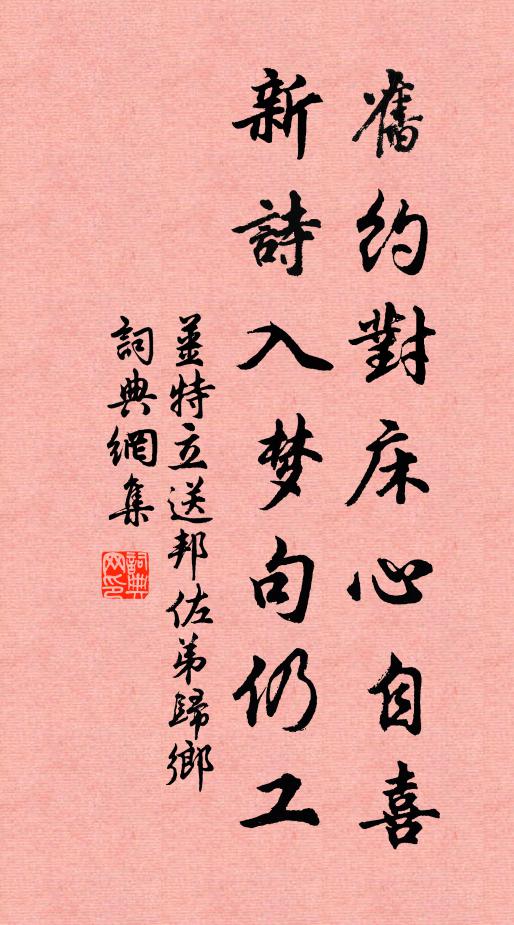 舊約對床心自喜
新詩入梦句仍工
薑特立送邦佐弟歸鄉
詞典網集
詞典网印